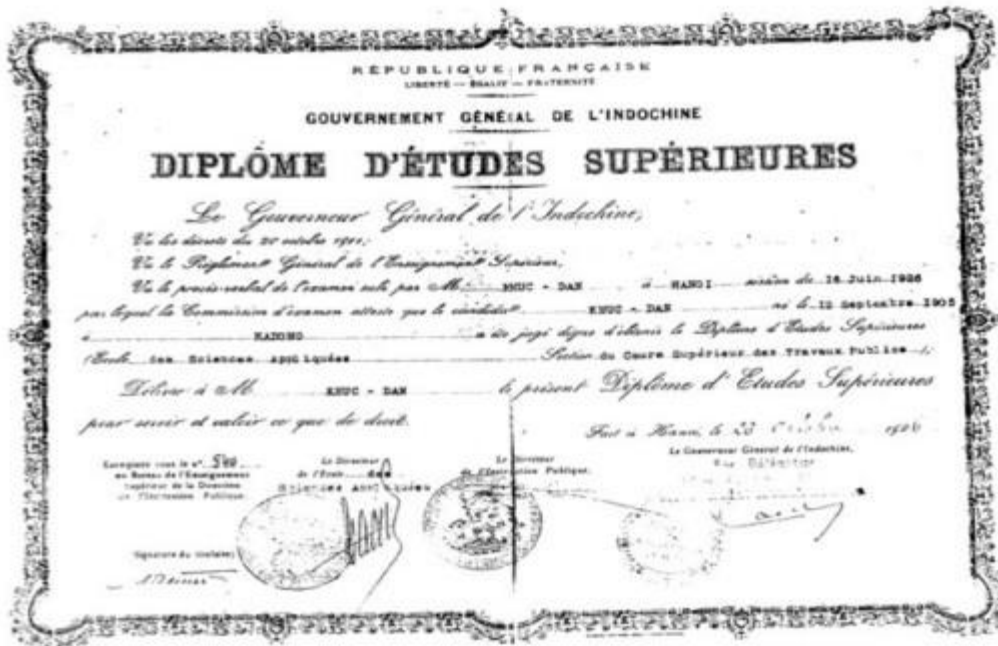 RÉPUBLIQUE FRANÇAISE
LIBERTÉ — ÉGALIT — FRATERNITÉ
GOUVERNEMENT GÉNÉRAL DE L'INDOCHINE
DIPLÔME D'ÉTUDES SUPÉRIEURES
Le Gouverneur Général de l'Indochine,
Vu les décrets du 20 octobre 1911;
Vu le Règlement Général de l'Enseignement Supérieur,
Vu le procès-verbal de l'examen subi par M. KHUC - DAN à HANOI session du 16 Juin 1926
par lequel la Commission d'examen atteste que le candidat KHUC - DAN né le 12 Septembre 1905
à HADONG a été jugé digne d'obtenir le Diplôme d'Études Supérieures
(École des Sciences Appliquées Section du Cours Supérieur des Travaux Publics
Délivré à M. KHUC - DAN le présent Diplôme d'Etudes Supérieures
pour servir et valoir ce que de droit.
Fait à Hanoi, le 23 1926
Enregistré sous le n°
au Bureau de l'Enseignement
Supérieur de la Direction
de l'Instruction Publique.
Le Directeur
de l'Ecole des
Sciences Appliquées
Le Directeur
de l'Instruction Publique,
Le Gouverneur Général de l'Indochine,
Par Délégation
Signature du titulaire,